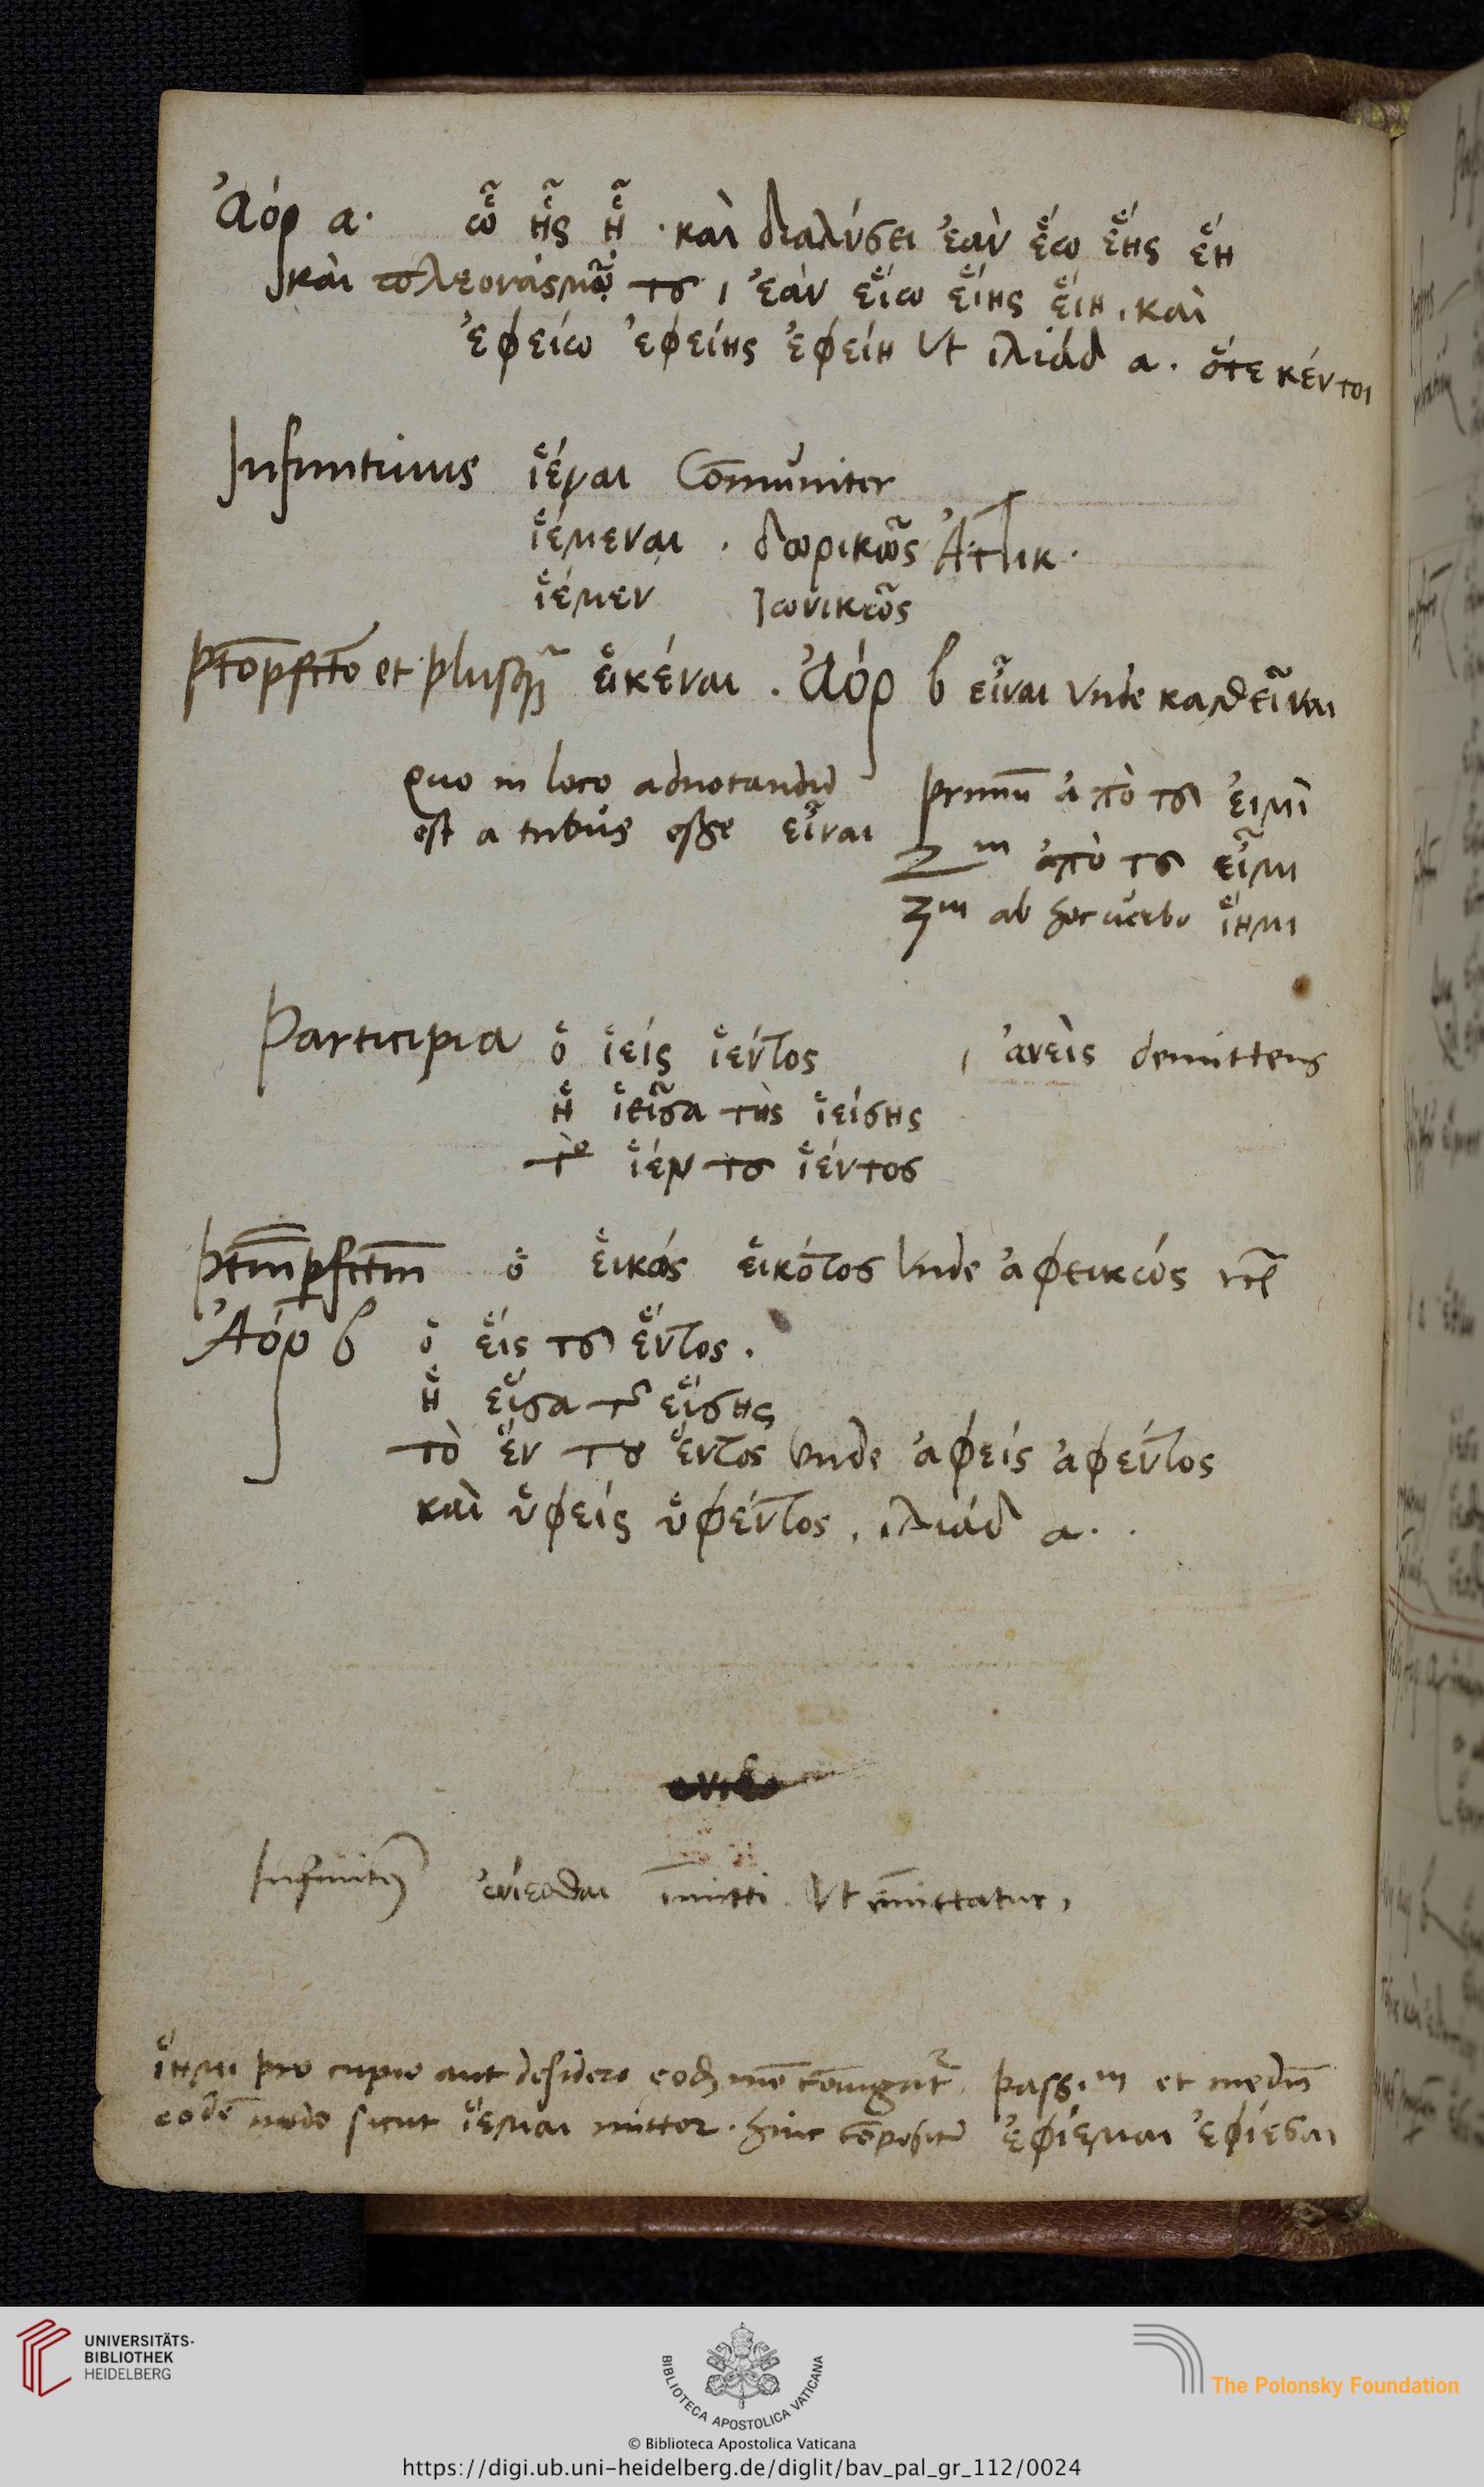 Ἀόρ α. ὧ ἧς ἧ . καὶ διαλύσει ἐὰν ἕω ἕης ἕη
καὶ πλεονάσμῳ του ι ἐὰν εἵω εἵης εἵη . καὶ
ἐφείω ἐφείης ἐφείη ut ιλιάδ α . ὅτε κέν τοι
Infinitiuus ἱέναι Cōmuniter
ἱέμεναι . δωρικῶς Ἀττικ.
ἱέμεν Ιωνικῶς
et plusq̃ εἱκέναι . Ἀόρ β εἷναι unde καθεῖναι
quo in loco adnotandū primū ἀπὸ του εἰμὶ
est a tribus esse εἶναι 2m ἀπὸ του εἶμι
3m ab hoc uerbo ἵημι
Participia ὁ ἱεὶς ἱέντος , ἀνεὶς demittens
ἡ ἱεῖσα τὴς ἱείσης
τὸ ἱέν του ἱέντος
ὁ εἱκὼς εἱκότος unde ἀφεικώς
Ἀόρ β ὁ εἵς του ἕντος .
ἡ εἵσα τῆς εἵσης
τὸ ἕν του ἕντος unde ἀφείς ἀφέντος
καὶ ὑφείς ὑφέντος . ιλιάδ α .
ἐνίεσθαι īmitti ut īmittatur ,
ἵημι pro cupio aut desidero eodē mō cōiugat̃ . passium et mediū
eodē modo sicut ἵεμαι mittor . hinc cōpositū ἐφίεμαι ἐφίεσαι
UNIVERSITÄTS-
BIBLIOTHEK
HEIDELBERG
BIBLIOTECA APOSTOLICA VATICANA
The Polonsky Foundation
© Biblioteca Apostolica Vaticana
https://digi.ub.uni-heidelberg.de/diglit/bav_pal_gr_112/0024